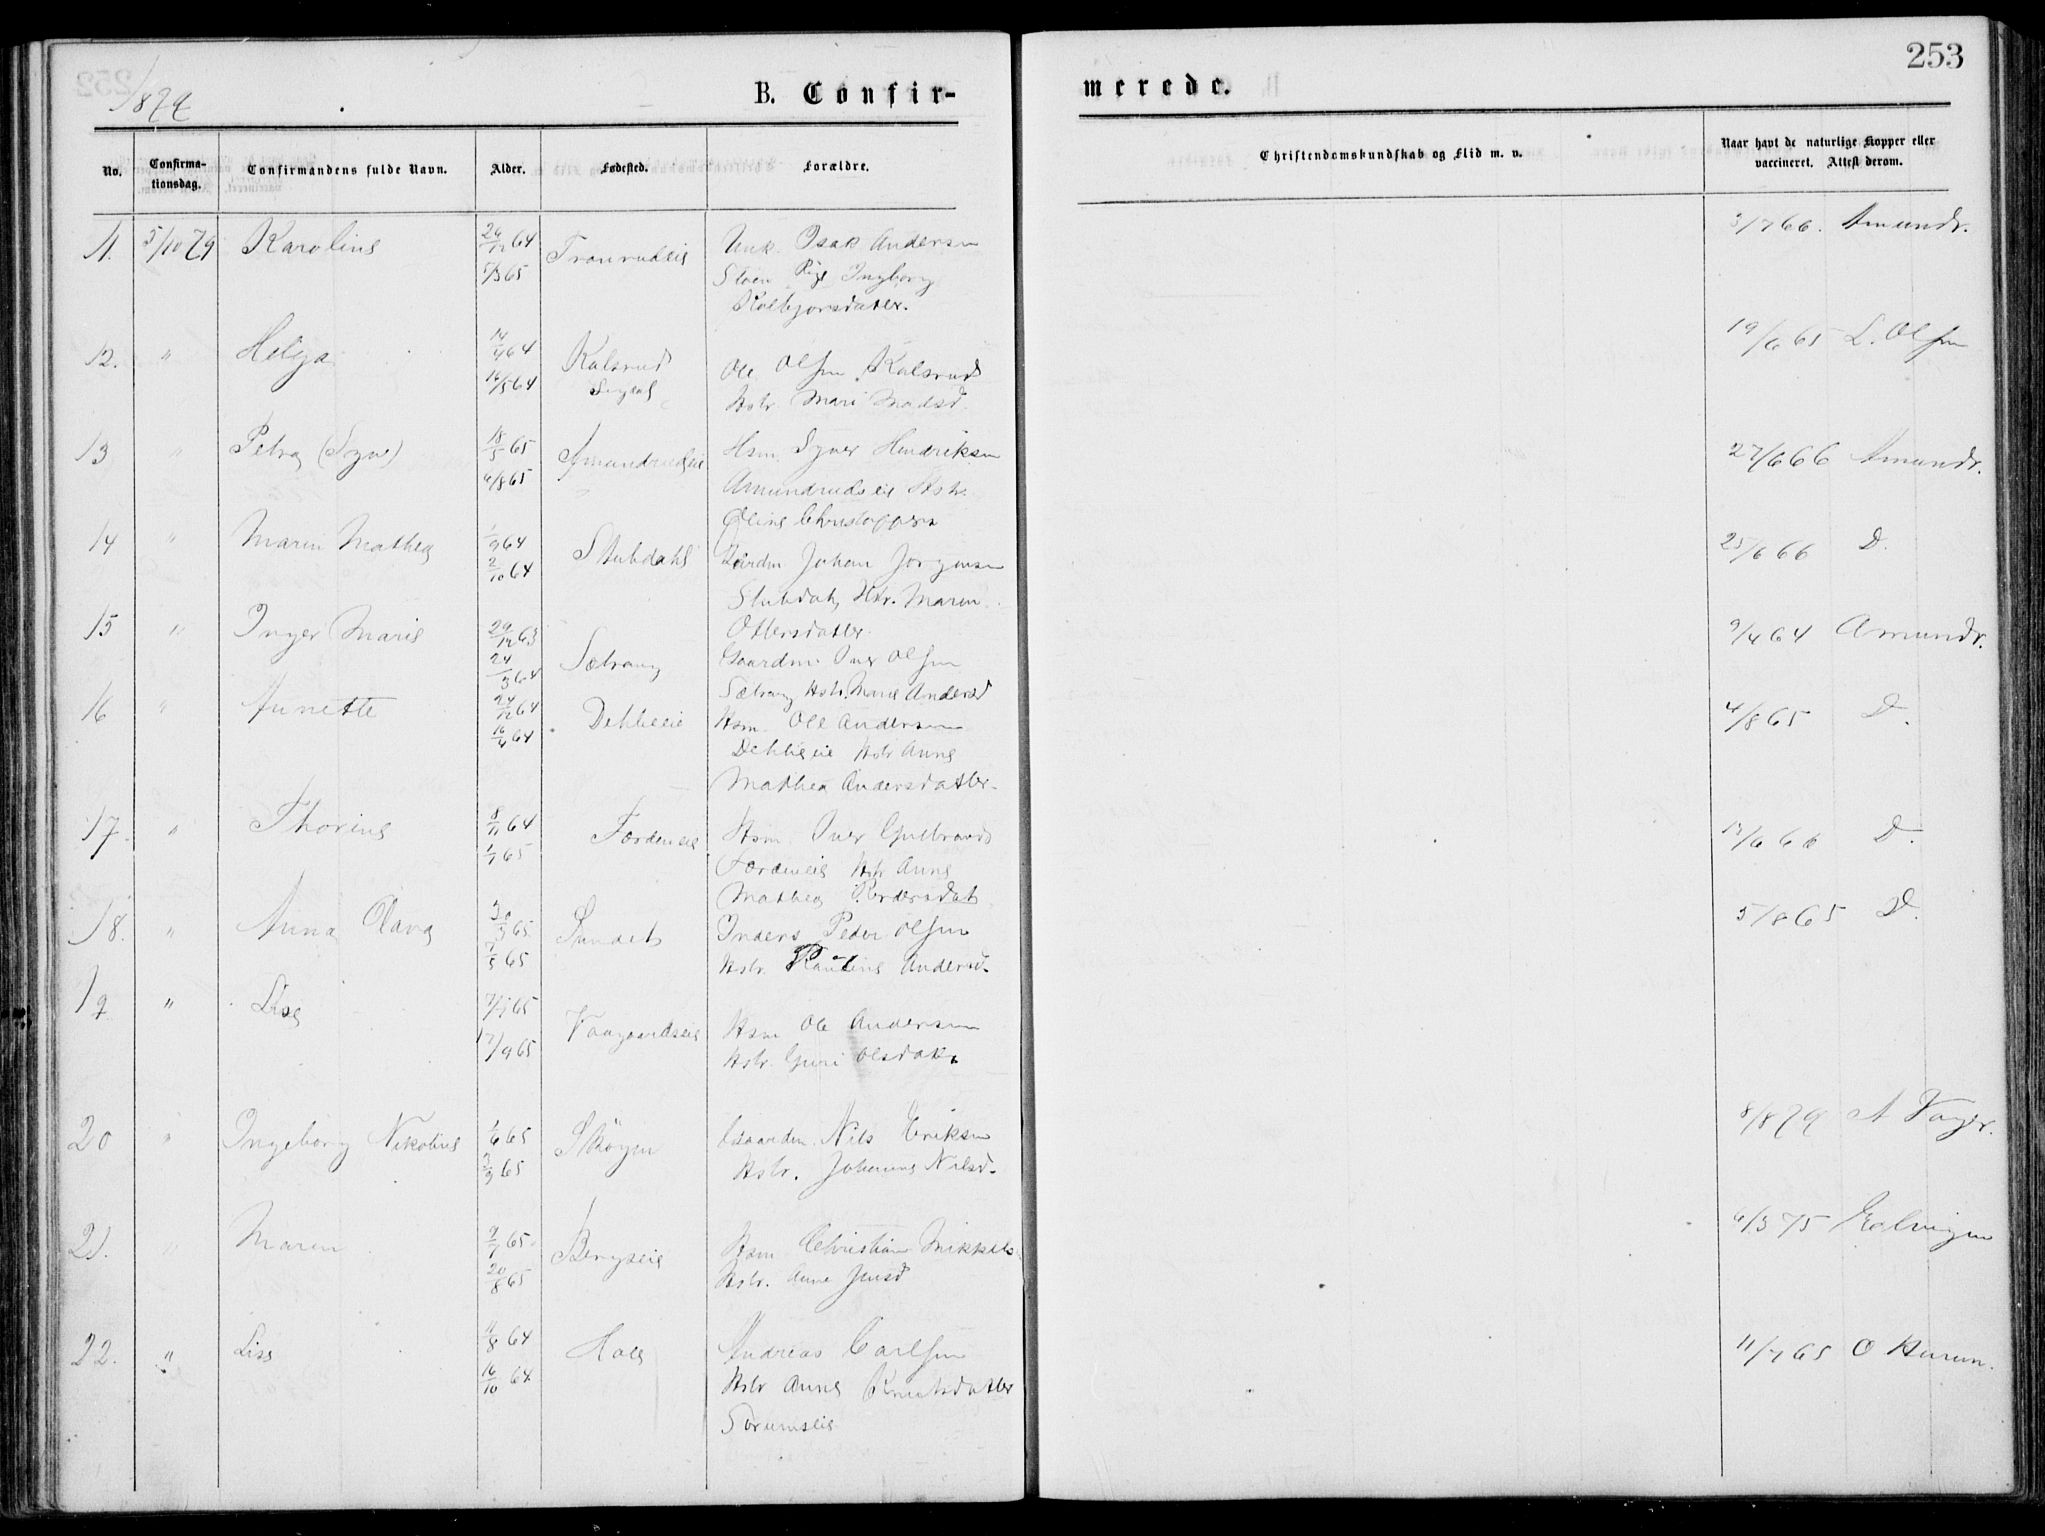 253
1879
B. Confir-
merede.
No.
Confirma-
tionsdag.
Confirmandens fulde Navn.
Alder.
Fødested.
Forældre.
Christendomskundskab og Flid m. v.
Naar havt de naturlige Kopper eller
vaccineret. Attest derom.
11. 5/10 79 Karoline 29/12 64 Tranrudeie Unk. Isak Andersen 3/7 66. Amundr.
7/3 65 Pige Ingborg
Kolbjørnsdatter.
12. " Helga 14/4 64 Kalsrud Ole Olsen Kalsrud 19/6 65 L. Olsen
16/5 64 Sigdal Hstr. Mari Madsd.
13 " Petra 18/5 65 Amundrudseie Hsm. Syver Hendriksen 27/6 66 Amundr.
6/8 65 Amundrudseie Hstr.
Oline Christophers
14 " Maren Mathea 1/9 64 Stubdahl Gårdm Johan Jørgensen 25/6 66 D.
2/10 64 Stubdal, Hstr. Maren
Ottersdatter.
15 " Inger Marie 29/12 63 Sætrang Gaardm. Iver Olsen 9/4 64 Amundr.
24/3 64 Sætrang Hstr. Marie Andersd
16 " Annette 24/12 64 Dehlieie Hsm. Ole Andersen 4/8 65 D.
16/4 64 Dehlieie Hstr Anne
Mathea Andersdatter.
17. " Thorine 8/11 64 Fordeneie Hsm. Iver Gulbrands 6 66 D.
1/1 65 Fordeneie Hstr Anne
Mathea Pedersdat
18. " Anna Olava 30/3 65 Sundet Inders Peder Olsen 5/8 65 D.
7/5 65 Hstr. Pauline Andersd.
19 " Lise 7/7 65 Vaagaardseie Hsm Ole Andersen
17/9 65 Hstr. Guri Olsdatter
20 " Ingeborg Nikoline 1/6 65 Skøyen Gaardm. Nils Eriksen 8/8 79 A Vager.
65 Hstr. Johanne Nilsd.
21. " Maren 9/7 65 Bergseie Hsm Christian Mikkels 6/3 75
20/8 65 Hstr. Anne Jensd
22. " Lise 11/8 64 Hole Andreas Carlsen 11/7 65 O Hurum.
16/10 64 Hstr Anne Knutsdatter
Sorumseie